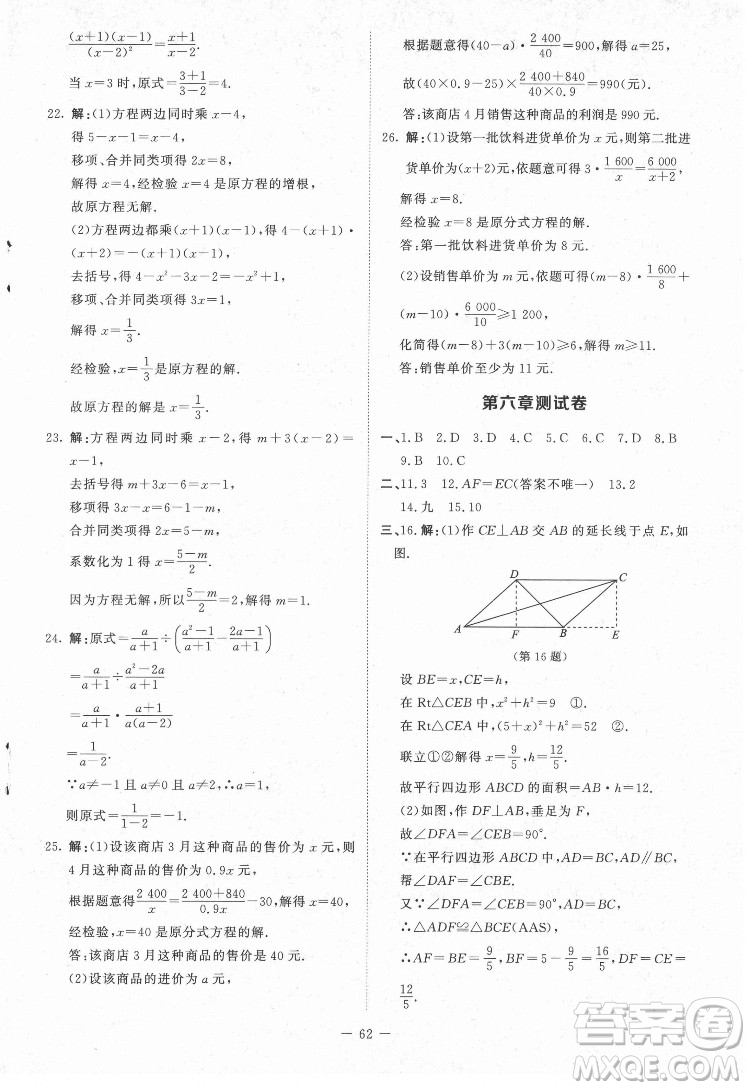 (x+1)(x-1)/(x-2)²=(x+1)/(x-2).
当 x=3 时,原式=(3+1)/(3-2)=4.
22. 解:(1)方程两边同时乘 x-4,
得 5-x-1=x-4,
移项、合并同类项得 2x=8,
解得 x=4,经检验 x=4 是原方程的增根,
故原方程无解.
(2)方程两边都乘(x+1)(x-1),得 4-(x+1)·
(x+2)=-(x+1)(x-1),
去括号,得 4-x²-3x-2=-x²+1,
移项、合并同类项得 3x=1,
解得 x=1/3.
经检验,x=1/3 是原方程的解,
故原方程的解是 x=1/3.
23. 解:方程两边同时乘 x-2,得 m+3(x-2)=
x-1,
去括号得 m+3x-6=x-1,
移项得 3x-x=6-1-m,
合并同类项得 2x=5-m,
系数化为 1 得 x=(5-m)/2,
因为方程无解,所以(5-m)/2=2,解得 m=1.
24. 解:原式=a/(a+1)÷((a²-1)/(a+1)-(2a-1)/(a+1))
=a/(a+1)÷(a²-2a)/(a+1)
=a/(a+1)·(a+1)/(a(a-2))
=1/(a-2).
∵a≠-1 且 a≠2,∴a=1,
则原式=1/(1-2)=-1.
25. 解:(1)设该商店 3 月这种商品的售价为 x 元,则
4 月这种商品的售价为 0.9x 元,
根据题意得 2 400/x=(2 400+840)/0.9x-30,
经检验,x=40 是原分式方程的解.
答:该商店 3 月这种商品的售价是 40 元.
(2)设该商品的进价为 a 元,
根据题意得(40-a)·2 400/40=900,解得 a=25,
故(40×0.9-25)×(2 400+840)/(40×0.9)=990(元).
答:该商店 4 月销售这种商品的利润是 990 元.
26. 解:(1)设第一批饮料进货单价为 x 元,则第二批进
货单价为(x+2)元,依题意可得 3·1 600/x=6 000/(x+2),
解得 x=8.
经检验 x=8 是原分式方程的解.
答:第一批饮料进货单价为 8 元.
(2)设销售单价为 m 元,依题意得(m-8)·1 600/8+
(m-10)·6 000/10≥1 200,
化简得(m-8)+3(m-10)≥6,解得 m≥11.
答:销售单价至少为 11 元.
第六章测试卷
一、1.B 2.D 3.D 4.C 5.A 6.D 7.B 8.C
9.B 10.C
二、11.3 12.AF=EC(答案不唯一) 13.2
14.九 15.10
三、16.解:(1)作 CE⊥AB 交 AB 的延长线于点 E,如
图.
D C
A F B E
(第 16 题)
设 BE=x,CE=h,
在 Rt△CEB 中,x²+h²=9 ①.
在 Rt△CEA 中,(5+x)²+h²=52 ②.
联立①②解得 x=9/5,h=12/5.
故平行四边形 ABCD 的面积=AB·h=12.
(2)如图,作 DF⊥AB,垂足为 F,
故∠DFA=∠CEB=90°.
∵平行四边形 ABCD 中,AD=BC,AD∥BC,
帮∠DAF=∠CBE.
又∵∠DFA=∠CEB=90°,
∴△ADF≌△BCE(AAS),
∴AF=BE=9/5,BF=5-9/5=16/5,DF=CE=
12/5.
— 62 —
答案卷
MXQE.COM